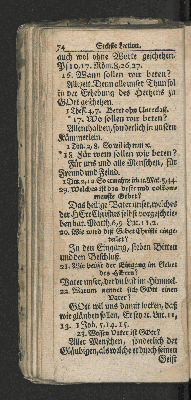 54 Sechste Lection.
auch wol ohne Worte geschehen.
Ps. 10, 17. Röm. 8. 26. 27.
16. Wann sollen wir beten?
Allezeit. Denn alles unser Thun sol
in der Erhebung des Hertzens zu
GOtt geschehen.
1 Thess. 4. 7. Betet ohn Unterlaß.
17. Wo sollen wir beten?
Allenthalben, sonderlich in unsern
Kämmerlein.
1 Tim. 2, 8. So wil ich nun ꝛc.
18 Für wem sollen wir beten?
Für uns und alle Menschen, für
Freund und Feind.
1 Tim. 2, 1. 2. So ermahne ich ꝛc. Matt. 5, 44.
19. Welches ist das beste und vollkom-
menste Gebet?
Das heilige Vater unser, welches
der HErr Christus selbst vorgeschrie-
ben hat. Matth. 6. 9. Luc. 11. 2.
20. Wie wird diß Gebet Christi einge-
theilet?
In den Eingang, sieben Bitten
und den Beschluß.
21. Wie heisset der Eingang im Gebet
des HErrn?
Vater unser, der du bist im Himmel.
22. Warum nennet sich GOtt einen
Vater?
GOtt wil uns damit locken, daß
wir gläuben sollen, Er sey ꝛc. Luc. 11,
13. 1 Joh. 5. 14. 15.
23. Wessen Vater ist GOtt?
Aller Menschen, sonderlich der
Gläubigen, als welche er durch seinen
Geist